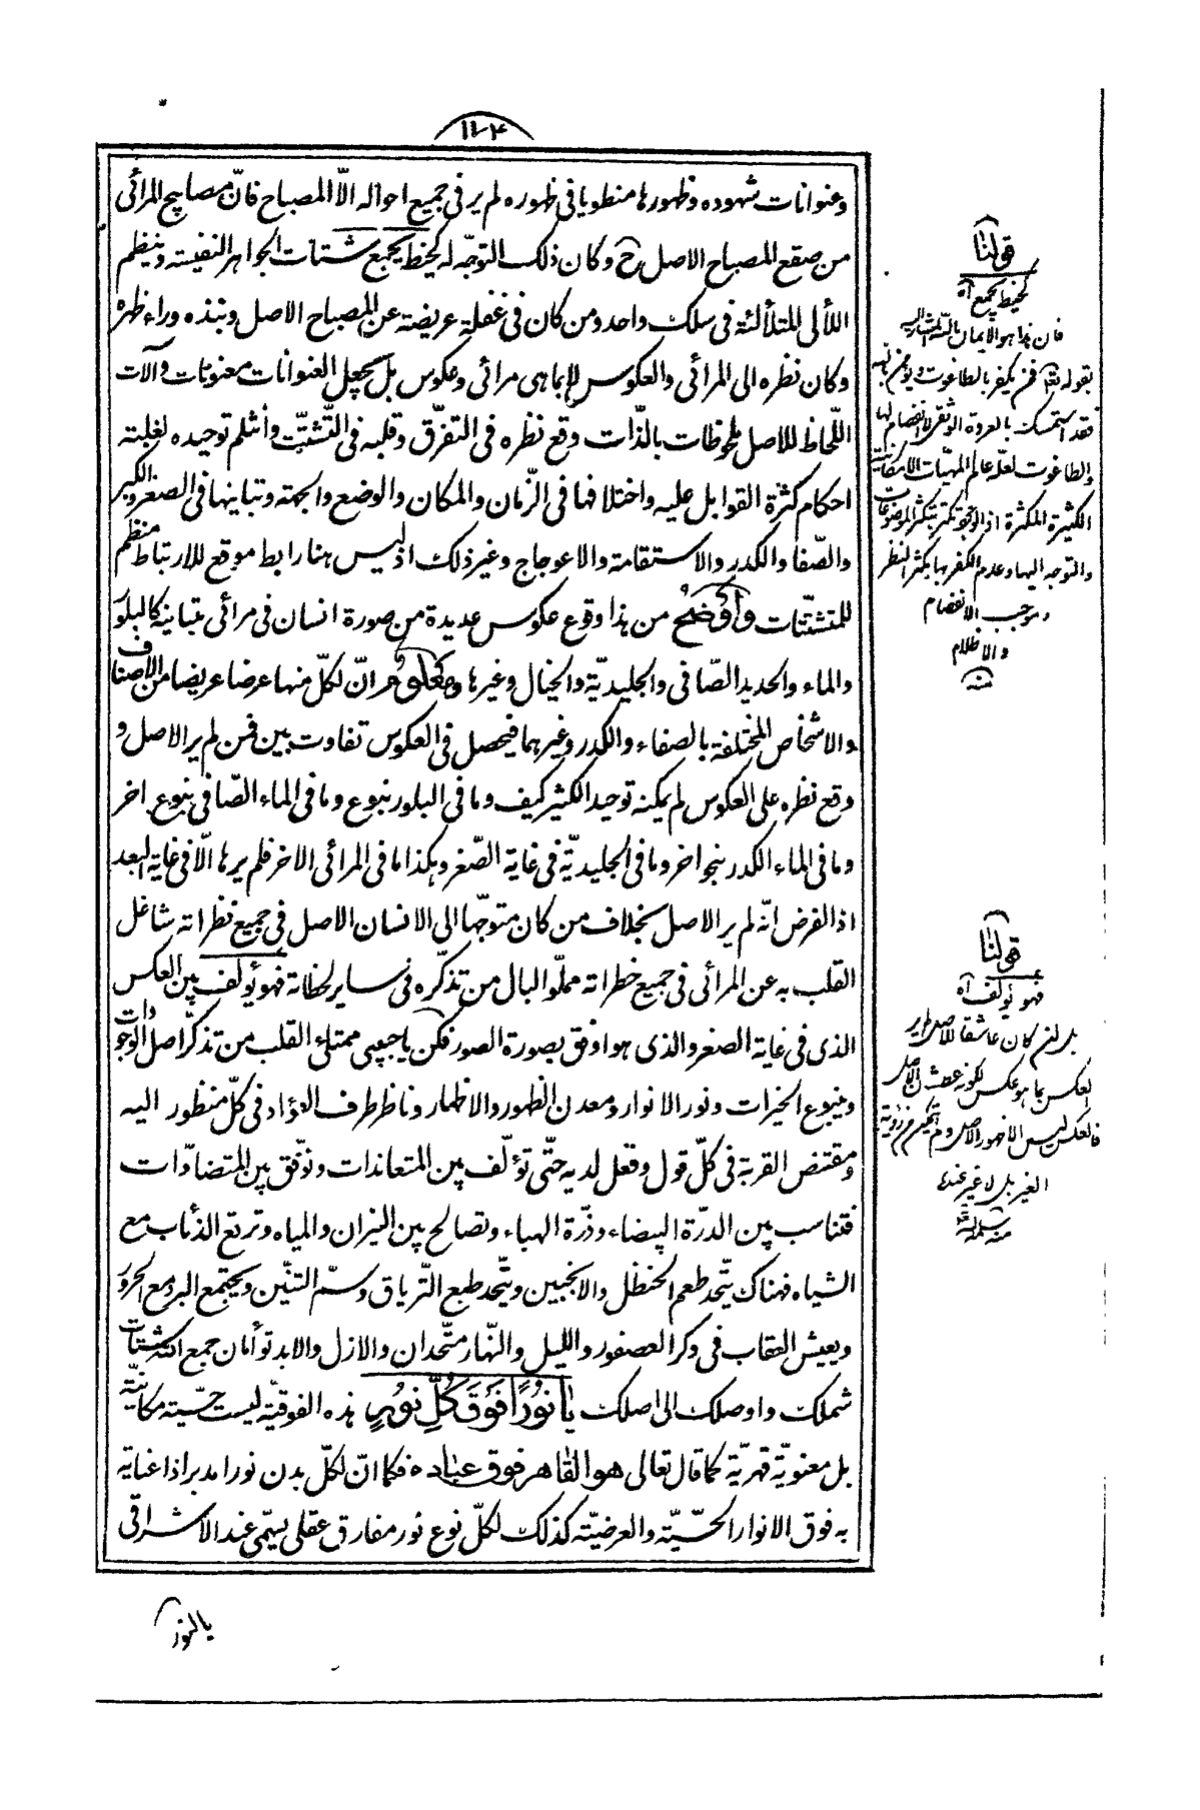 ١١٠٤
وعنوانات شهوده وظهورها منطويا فى ظهوره لم ير فى جميع احواله الّا المصباح فانّ مصابيح المرائى
من صقع المصباح الاصل ح وكان ذلك التوجّه له كخيط يجمع شتات الجواهر النفيسة وينظم
اللألى المتلألئة فى سلك واحد ومن كان فى غفلة عريضة عن المصباح الاصل ونبذه وراء ظهره
وكان نظره الى المرائى والعكوس لا بما هى مرائى وعكوس بل يجعل العنوانات معنونات وآلات
اللّحاظ للاصل ملحوظات بالذّات وقع نظره فى التفرّق وقلبه فى التّشتّت وأنثلم توحيده لغلبة
احكام كثرة القوابل عليه واختلافها فى الزّمان والمكان والوضع والجهة وتباينها فى الصغر والكبر
والصّفا والكدر والاستقامة والاعوجاج وغير ذلك اذ ليس هنا رابط موقع للارتباط منظم
للمتشتّتات وأوضح من هذا وقوع عكوس عديدة من صورة انسان فى مرائى متباينة كالبلور
والماء والحديد الصّافى والجليديّة والخيال وغيرها ومعلوم انّ لكلّ منها عرضا عريضا من الاصناف
والاشخاص المختلفة بالصفاء والكدر وغيرهما فيحصل فى العكوس تفاوت بين فمن لم ير الاصل و
وقع نظره على العكوس لم يمكنه توحيد الكثير كيف وما فى البلور بنوع وما فى الماء الصّافى بنوع اخر
وما فى الماء الكدر بنحو اخر وما فى الجليديّة فى غاية الصّغر وهكذا ما فى المرائى الاخر فلم يرها الّا فى غاية البعد
اذ الفرض انّه لم ير الاصل بخلاف من كان متوجّها الى الانسان الاصل فى جميع نظراته شاغل
القلب به عن المرائى فى جميع خطراته مملّو البال من تذكّره فى ساير لحظاته فهو يؤلف بين العكس
الذى فى غاية الصغر والذى هو اوفق بصورة الصور فكن يا حبيبى ممتلئ القلب من تذكّر اصل الوجودات
وينبوع الخيرات ونور الانوار ومعدن الظهور والاظهار وناظر طرف الفؤاد فى كلّ منظور اليه
ومقتنص القربة فى كلّ قول وفعل لديه حتّى تؤلّف بين المتعاندات وتوفّق بين المتضادّات
فتناسب بين الدرّة البيضاء وذرّة الهباء وتصالح بين النيران والمياه وترتع الذئاب مع
الشياه فهناك يتّحد طعم الحنظل والانجبين ويتّحد طبع التّرياق وسمّ التنّين ويجتمع البرد مع الحرور
ويعيش العقاب فى وكر العصفور والليل والنّهار متّحدان والازل والابد توأمان جمع الله شتات
شملك واوصلك الى اصلك يا نورا فوق كلّ نور هذه الفوقيّة ليست حسّيّة مكانيّة
بل معنويّة قهريّة كما قال تعالى هو القاهر فوق عباده فكما انّ لكلّ بدن نورا مدبرا ذا عناية
به فوق الانوار الحسّيّة والعرضيّة كذلك لكلّ نوع نور مفارق عقلى يسمّى عند الاشراقى
بالنور
قولنا
كخيط يجمع اه
فان هذا هو الايمان بالله المشار اليه
بقوله تعالى فمن يكفر بالطاغوت ويؤمن بالله
فقد استمسك بالعروة الوثقى لا انفصام لها
والطاغوت لعلّه عالم المهيّات الامكانية
الكثيرة المكثرة اذ الوجود يتكثر بتكثر الموضوعات
والتوجه اليها وعدم الكفر بها يكثر النظر
وموجب الانفصام
والاظلام
منه
قولنا
فهو يؤلف اه
بل لمن كان عاشقا للاصل لم ير
العكس بما هو عكس لكونه عطشان الاصل
فالعكس ليس الا ظهور الاصل
الغير بل لا غير عندها
منه سلمه الله